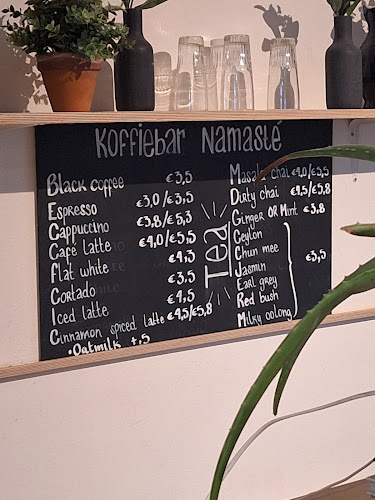 Koffiebar Namasté
Black coffee €3,5
Espresso €3,0/€3,5
Cappuccino €3,8/€5,3
Café latte €4,0/€5,5
Flat white €4,3
Cortado €3,5
Iced latte €4,5
Cinnamon spiced latte €4,5/€5,8
•Oatmilk +,5
Tea
Masala chai €4,0/€5,5
Dirty chai €4,5/€5,8
Ginger OR Mint €3,8
Ceylon
Chun mee
Jasmin €3,5
Earl grey
Red bush
Milky oolong